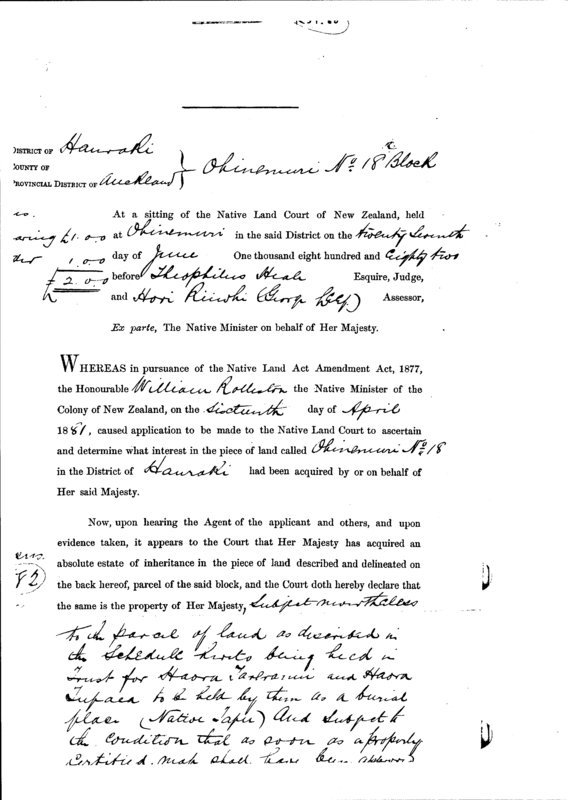 DISTRICT OF Hauraki
COUNTY OF
PROVINCIAL DISTRICT OF Auckland
Ohinemuri No. 18 Block
At a sitting of the Native Land Court of New Zealand, held
aring £1.0.0 at Ohinemuri in the said District on the twenty seventh
1.0.0 day of June One thousand eight hundred and eighty two
£2.0.0 before Theophilus Heale Esquire, Judge,
and Hori (George Assessor,
Ex parte, The Native Minister on behalf of Her Majesty.
WHEREAS in pursuance of the Native Land Act Amendment Act, 1877,
the Honourable William Rolleston the Native Minister of the
Colony of New Zealand, on the Sixteenth day of April
1881, caused application to be made to the Native Land Court to ascertain
and determine what interest in the piece of land called Ohinemuri No. 18
in the District of Hauraki had been acquired by or on behalf of
Her said Majesty.
Now, upon hearing the Agent of the applicant and others, and upon
evidence taken, it appears to the Court that Her Majesty has acquired an
absolute estate of inheritance in the piece of land described and delineated on
82 the back hereof, parcel of the said block, and the Court doth hereby declare that
the same is the property of Her Majesty, Subject nevertheless
to the parcel of land as described in
the Schedule hereto being held in
Trust for Haora Tareranui and Haora
Tupaea to be held by them as a burial
place (Native Tapu) And Subject to
the condition that as soon as a properly
Certified map shall have been